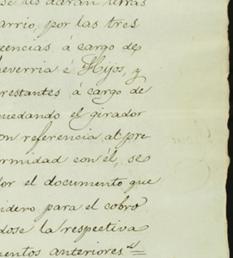 se les darán letras
arrio, por las tres
encias á cargo de
heverria é Hijos, y
restantes á cargo de
quedando el girador
on referencia al pre
ormidad con él, se
dor el documento que
idero para el cobro
dose la respectiva
mentos anteriores.=